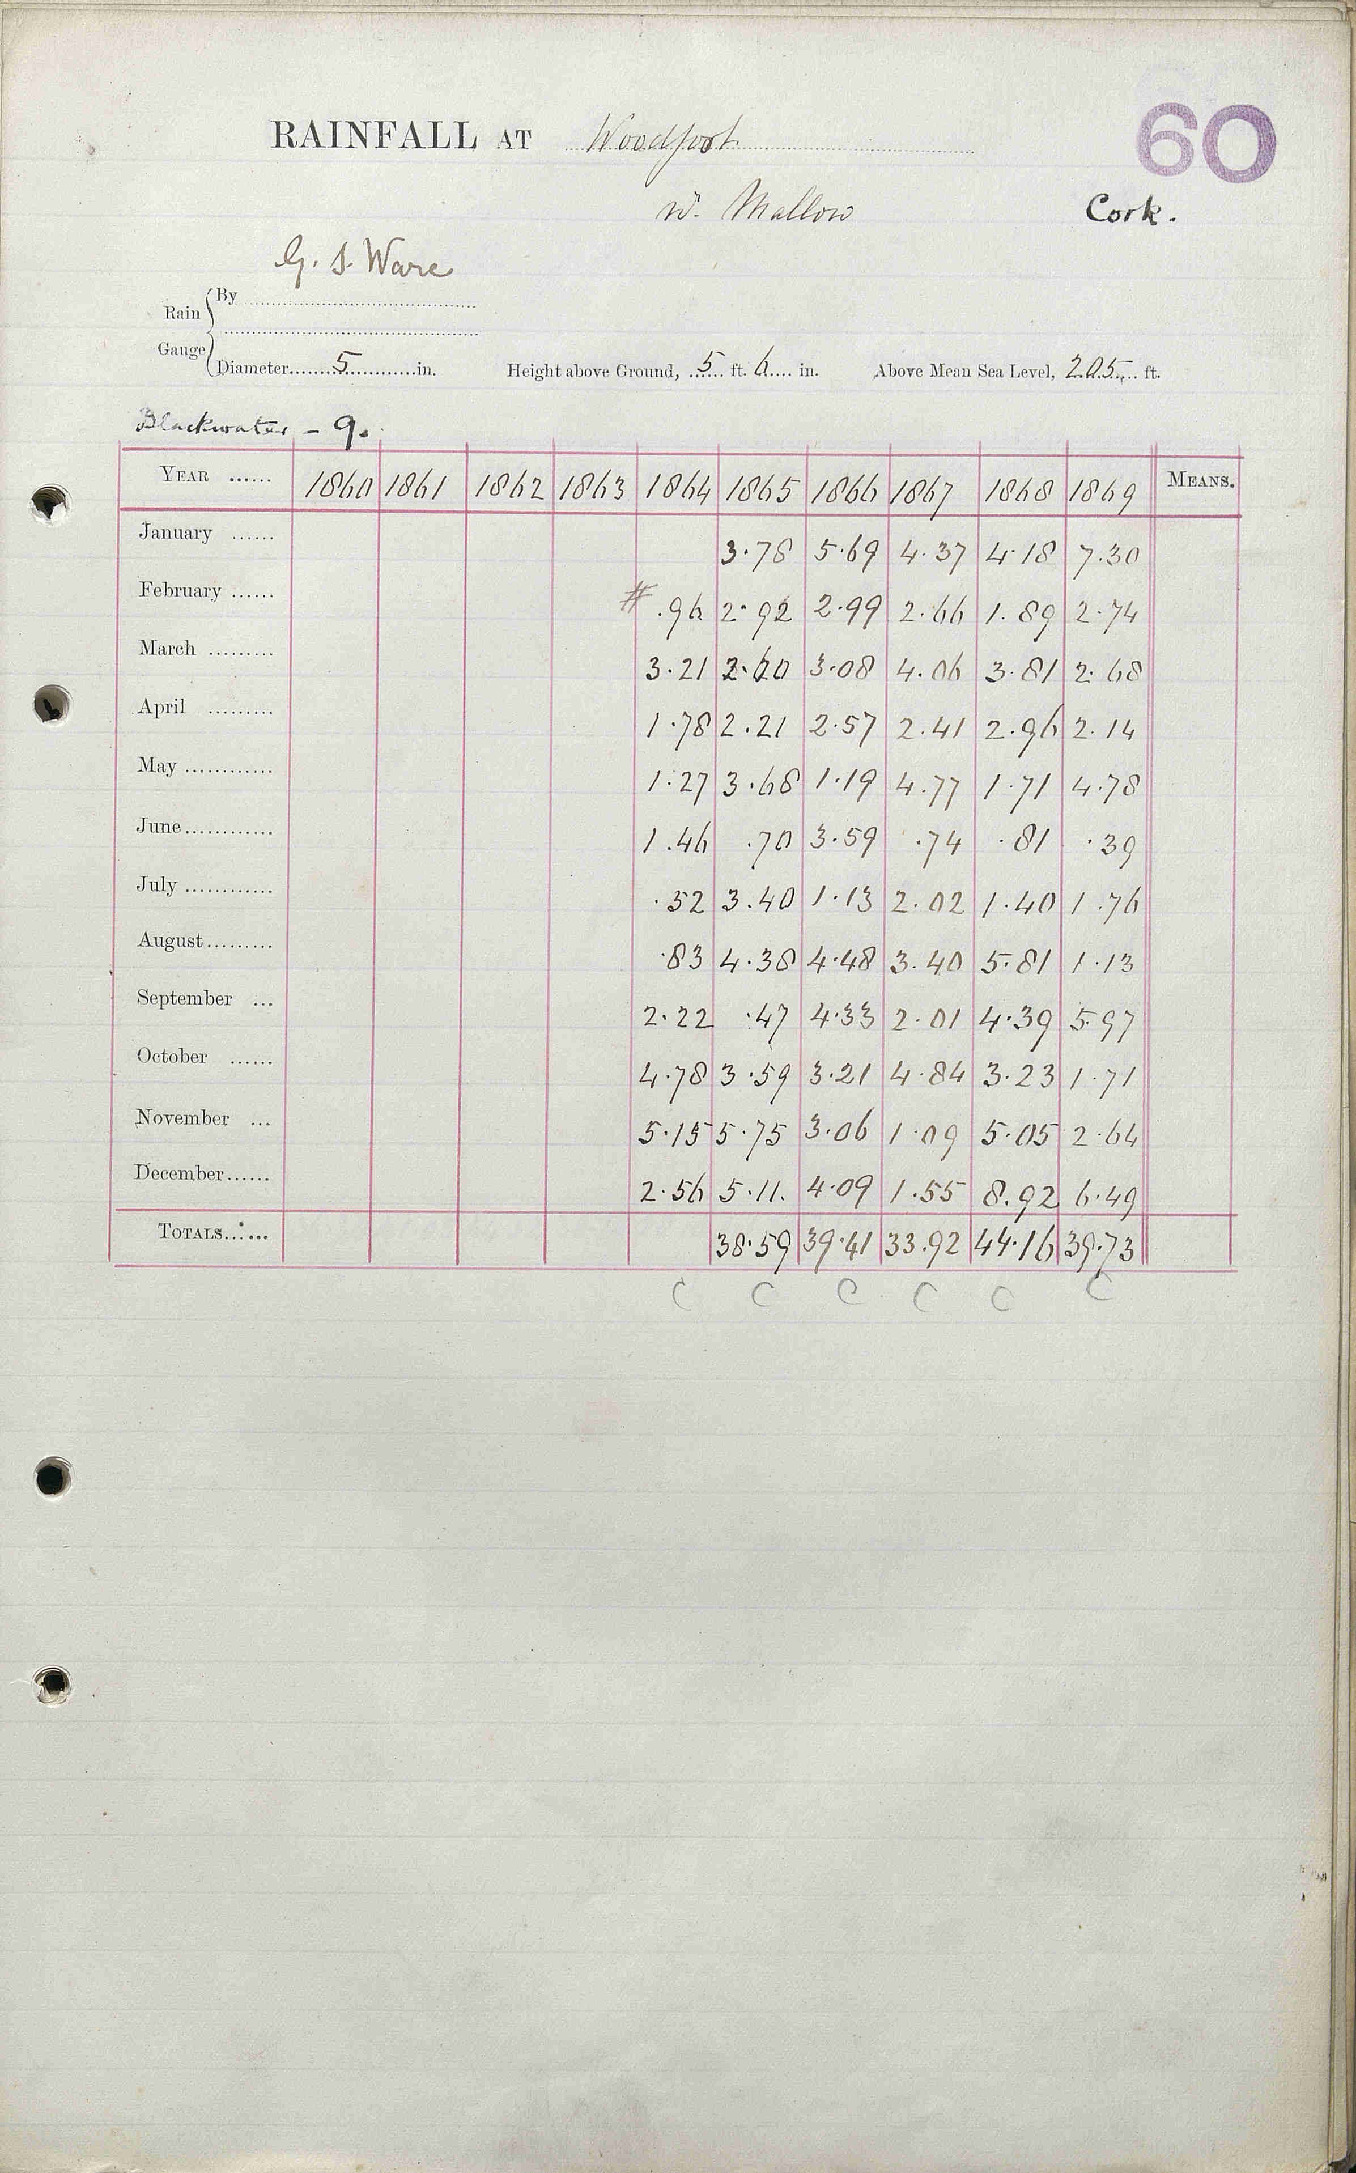 60
RAINFALL AT Woodfort
nr. Mallow Cork.
G. S. Ware
Rain Gauge
By
Diameter 5 in. Height above Ground, 5 ft. 6 in. Above Mean Sea Level, 205 ft.
Blackwater - 9.
YEAR ...... 1860 1861 1862 1863 1864 1865 1866 1867 1868 1869 MEANS.
January ...... 3.78 5.69 4.37 4.18 7.30
February ...... # .96 2.92 2.99 2.66 1.89 2.74
March ......... 3.21 2.60 3.08 4.06 3.81 2.68
April ......... 1.78 2.21 2.57 2.41 2.96 2.14
May ............ 1.27 3.68 1.19 4.77 1.71 4.78
June ............ 1.46 .70 3.59 .74 .81 .39
July ............ .52 3.40 1.13 2.02 1.40 1.76
August ......... .83 4.38 4.48 3.40 5.81 1.13
September ... 2.22 .47 4.33 2.01 4.39 5.97
October ...... 4.78 3.59 3.21 4.84 3.23 1.71
November ... 5.15 5.75 3.06 1.09 5.05 2.64
December ...... 2.56 5.11. 4.09 1.55 8.92 6.49
TOTALS ...... 38.59 39.41 33.92 44.16 39.73
C C C C C C